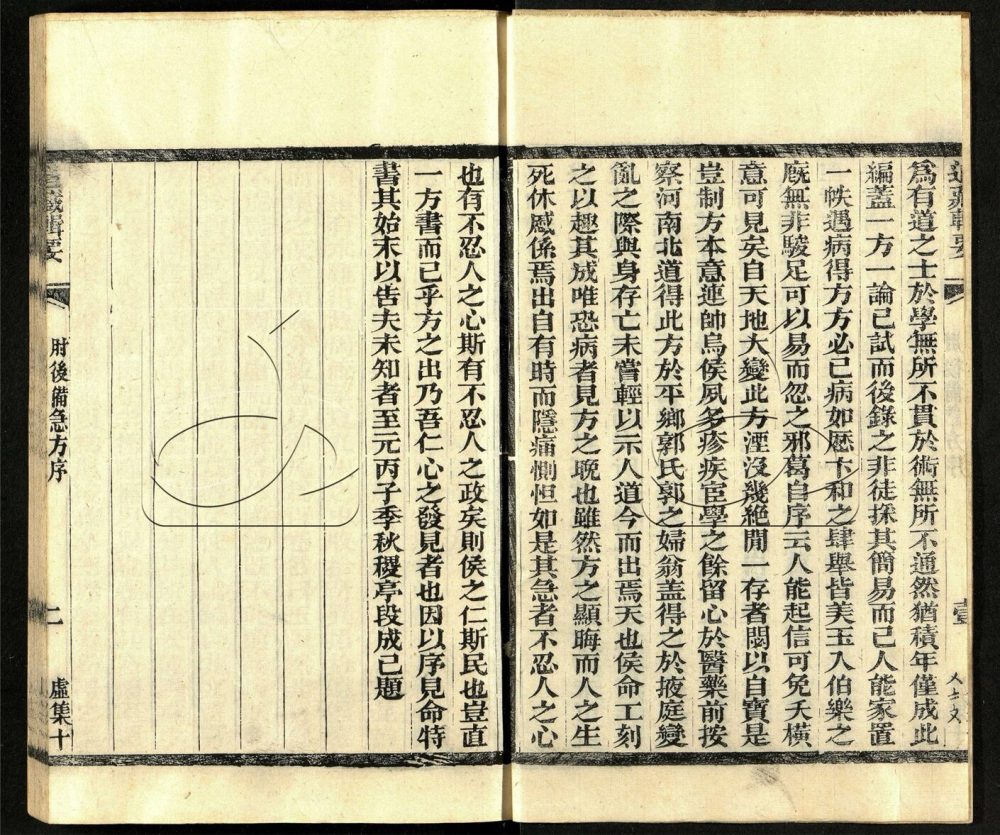 道藏輯要
為有道之士於學無所不貫於術無所不通然猶積年僅成此
編蓋一方一論已試而後錄之非徒採其簡易而已人能家置
一帙遇病得方方必已病如歷卞和之肆舉皆美玉入伯樂之
廐無非駿足可以易而忽之邪葛自序云人能起信可免夭橫
意可見矣自天地大變此方湮沒幾絶閒一存者閟以自寶是
豈制方本意連帥烏侯夙多疹疾宦學之餘留心於醫藥前按
察河南北道得此方於平鄉郭氏郭之婦翁蓋得之於掖庭變
亂之際與身存亡未嘗輕以示人道今而出焉天也侯命工刻
之以趣其成唯恐病者見方之晚也雖然方之顯晦而人之生
死休慼係焉出自有時而隱痛惻怛如是其急者不忍人之心
也有不忍人之心斯有不忍人之政矣則侯之仁斯民也豈直
一方書而已乎方之出乃吾仁心之發見者也因以序見命特
書其始末以告夫未知者至元丙子季秋稷亭段成已題
道藏輯要
肘後備急方序
二
虛集十